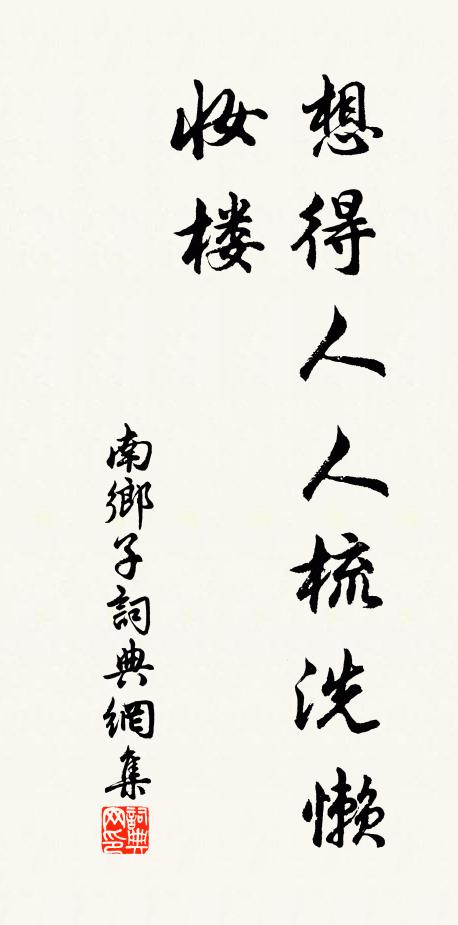 想得人人梳洗懒
妆楼
南鄉子詞典網集
詞典
网印